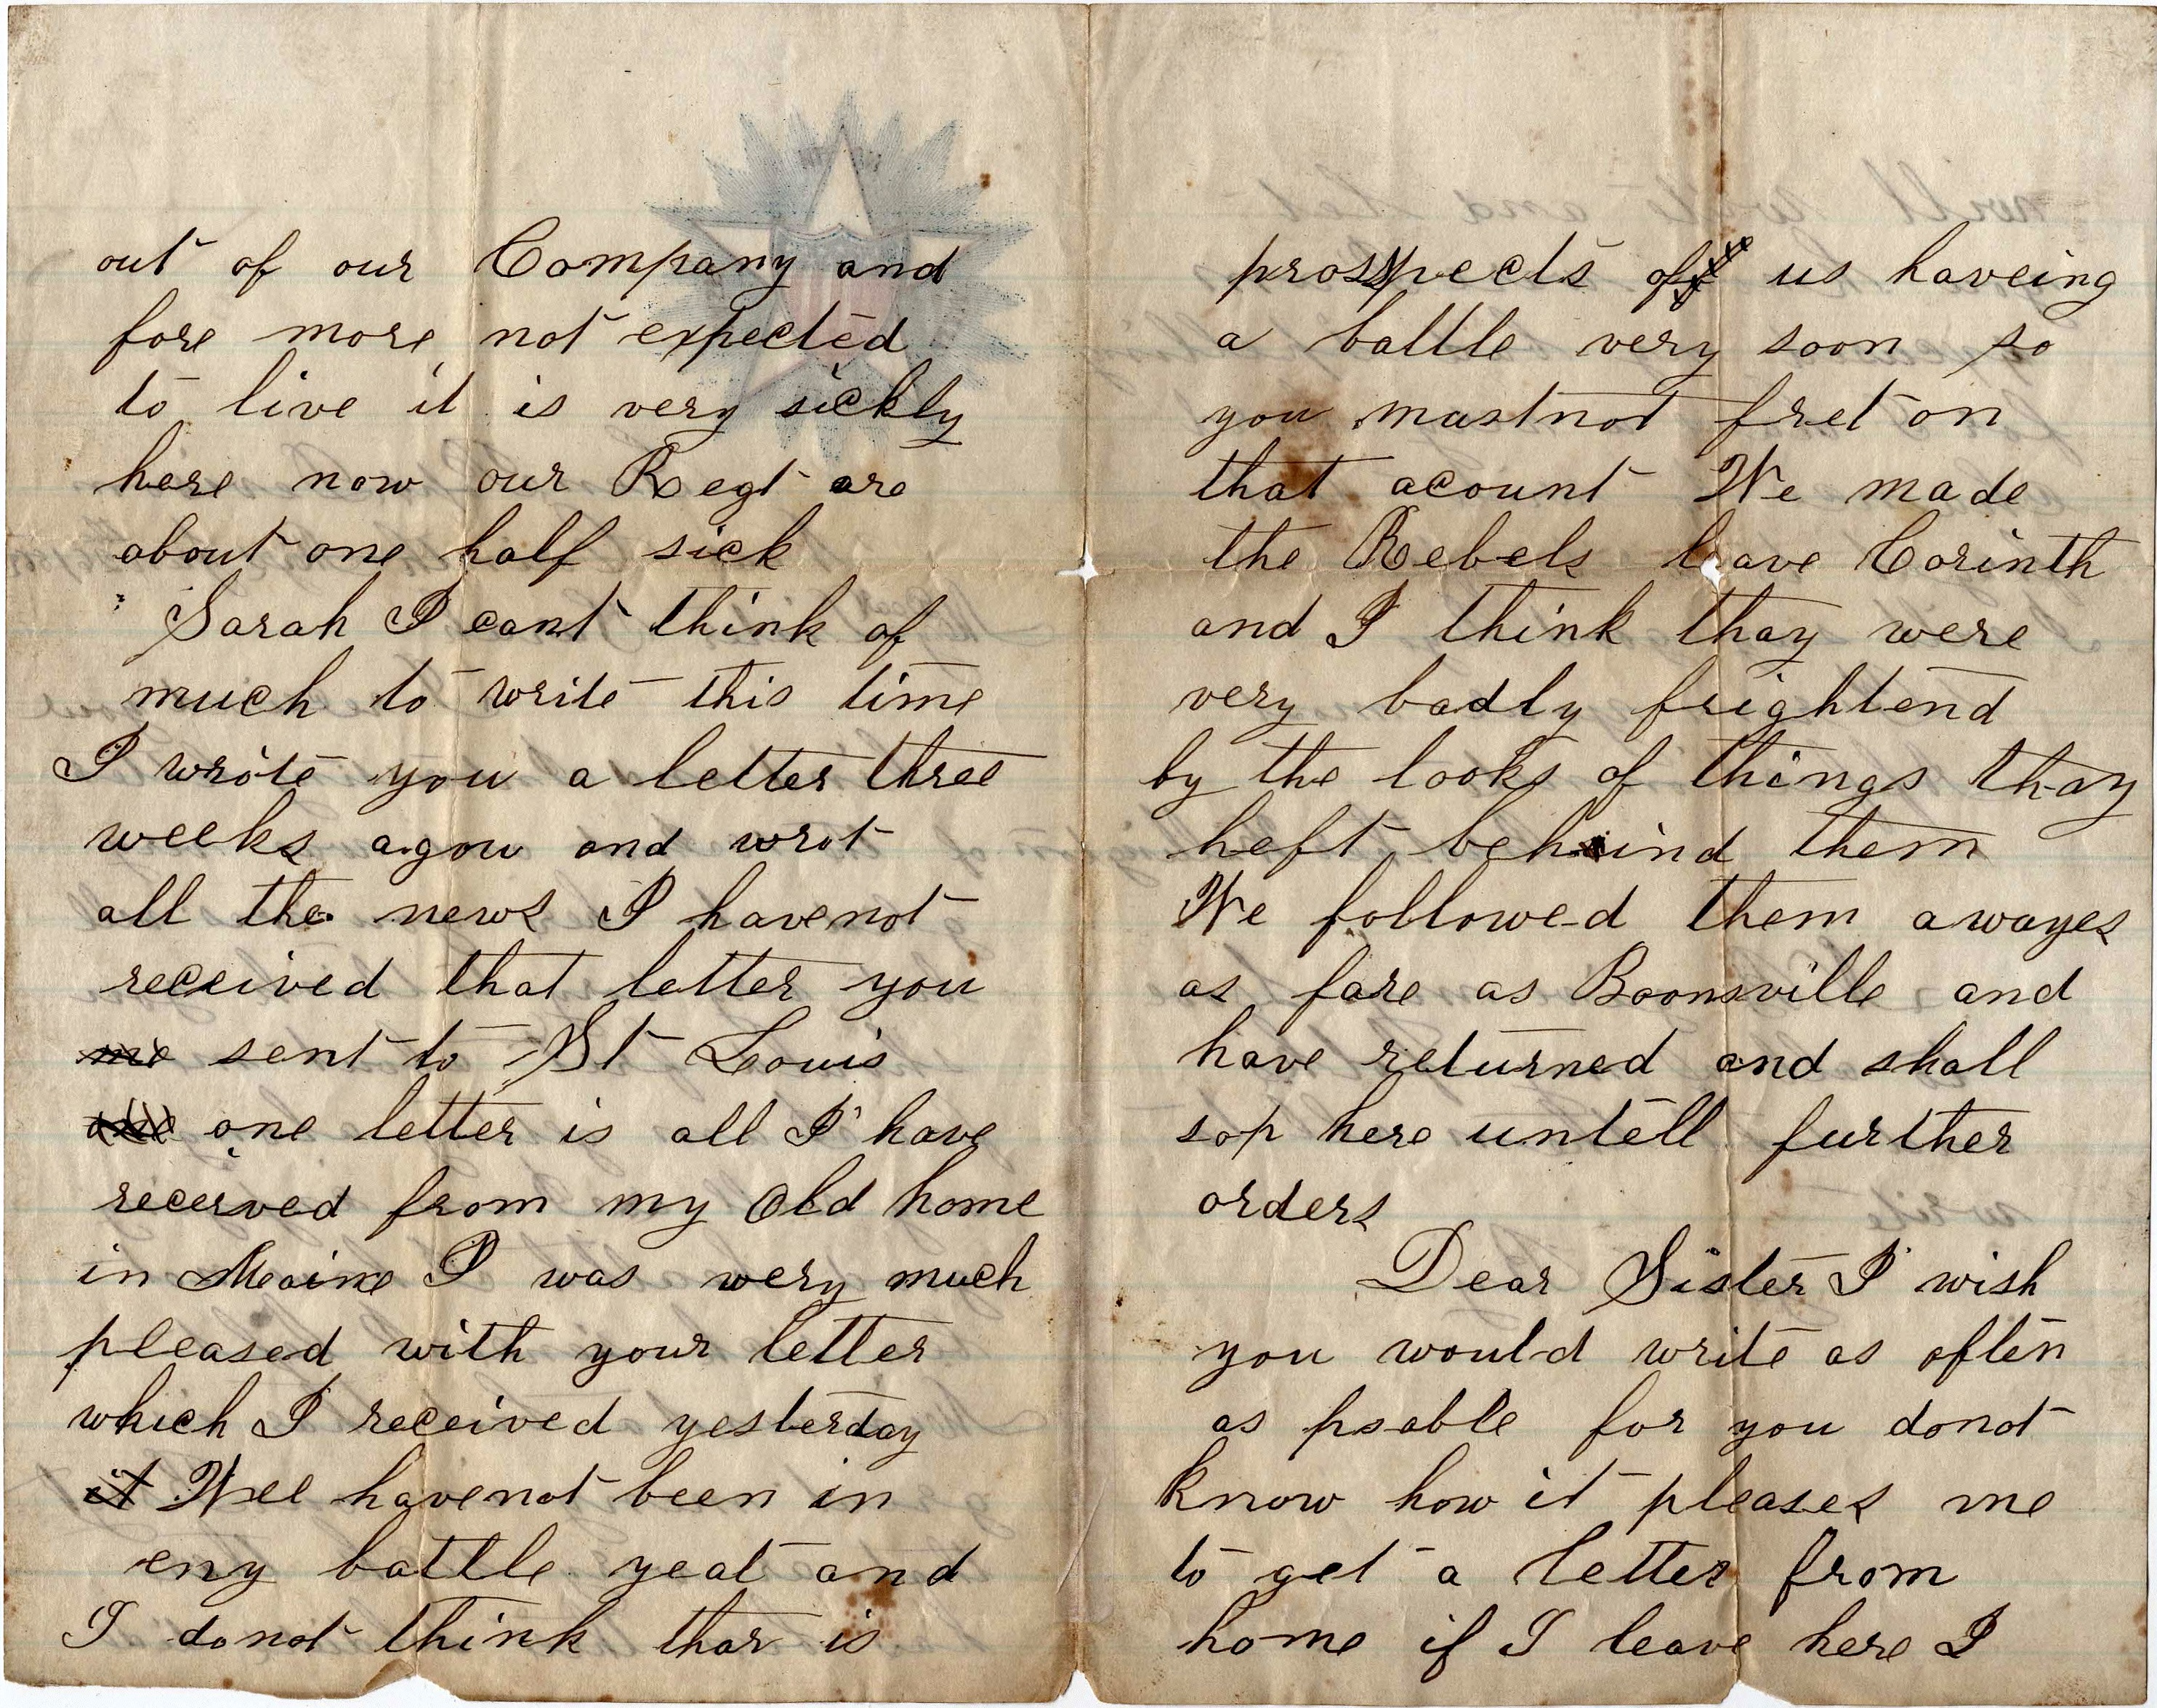 out of our Company and
fore more not expected
to live it is very sickly
here now our Regt are
about one half sick
Sarah I cant think of
much to write this time
I wrote you a letter three
weeks agow and wrot
all the news I havenot
received that letter you
me sent to St Louis
one one letter is all I have
recerved from my Old home
in Maine I was very much
pleased with your letter
which I received yesterday
it Wee havenot been in
eny battle yeat and
I donot think thar is
prosspects off us haveing
a battle very soon so
you mustnot fret on
that acount We made
the Rebels leave Corinth
and I think thay were
very badly frightend
by the looks of things thay
heft behind them
We followed them awayes
as fare as Boonsville and
have returned and shall
sop here untell further
orders
Dear Sister I wish
you would write as often
as psable for you donot
know how it pleases me
to get a letter from
home if I leave here I